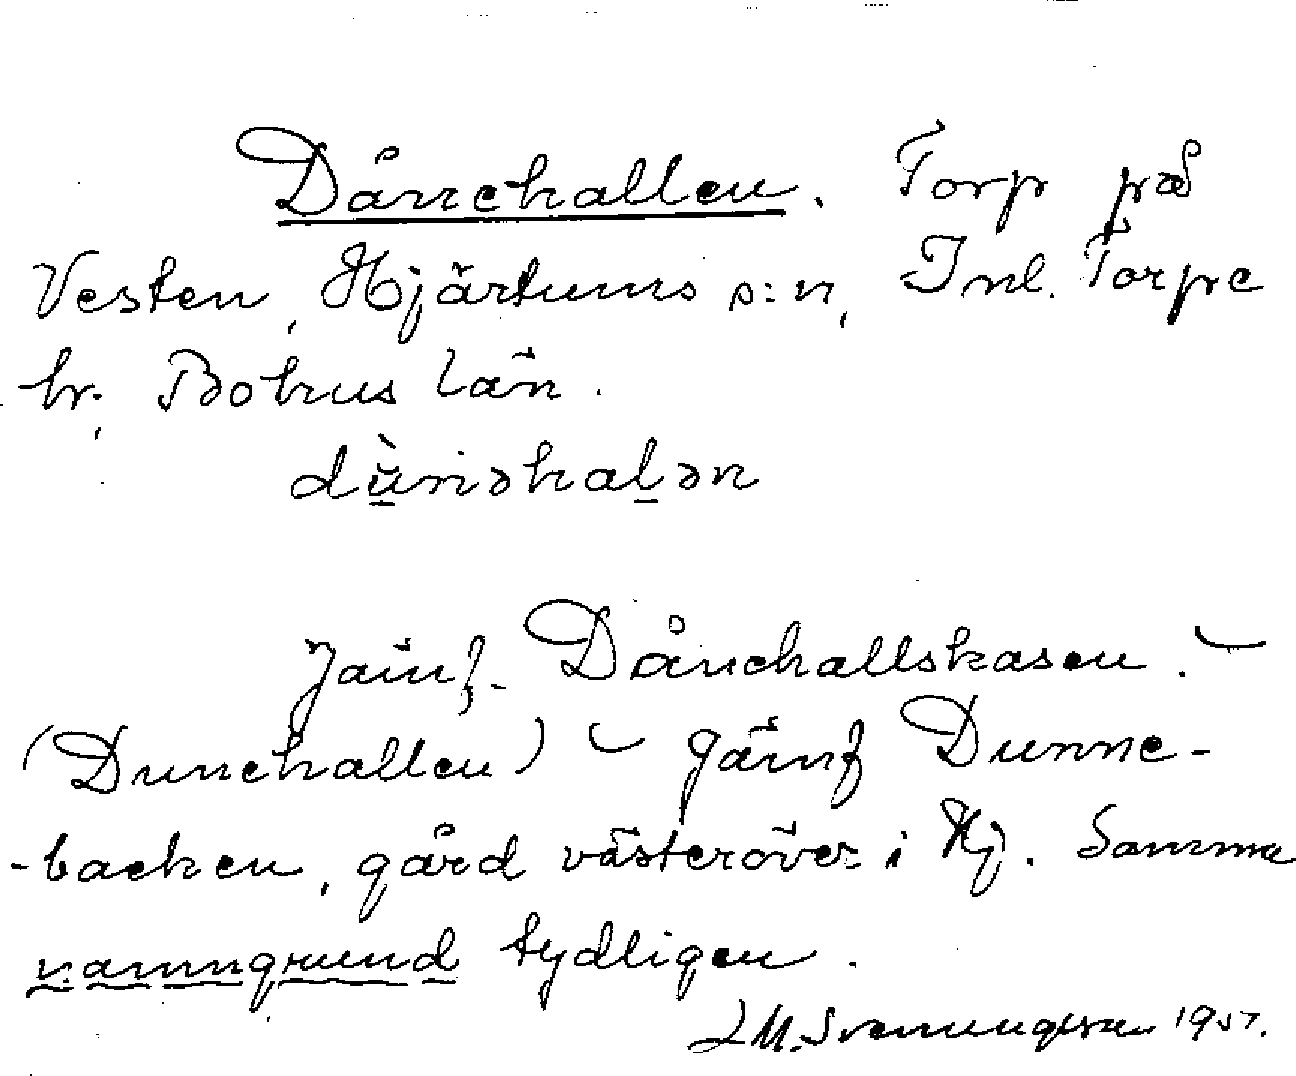 Dånehallen. Torp på
Vesten, Hjärtums s:n, Inl. Torpe
hr, Bohus län.
dùnəhaḻən
Jämf. Dånehallskasen. —
(Dunehallen) — Jämf Dunne-
-backen, gård västeröver i Hj. Samma
namngrund tydligen.